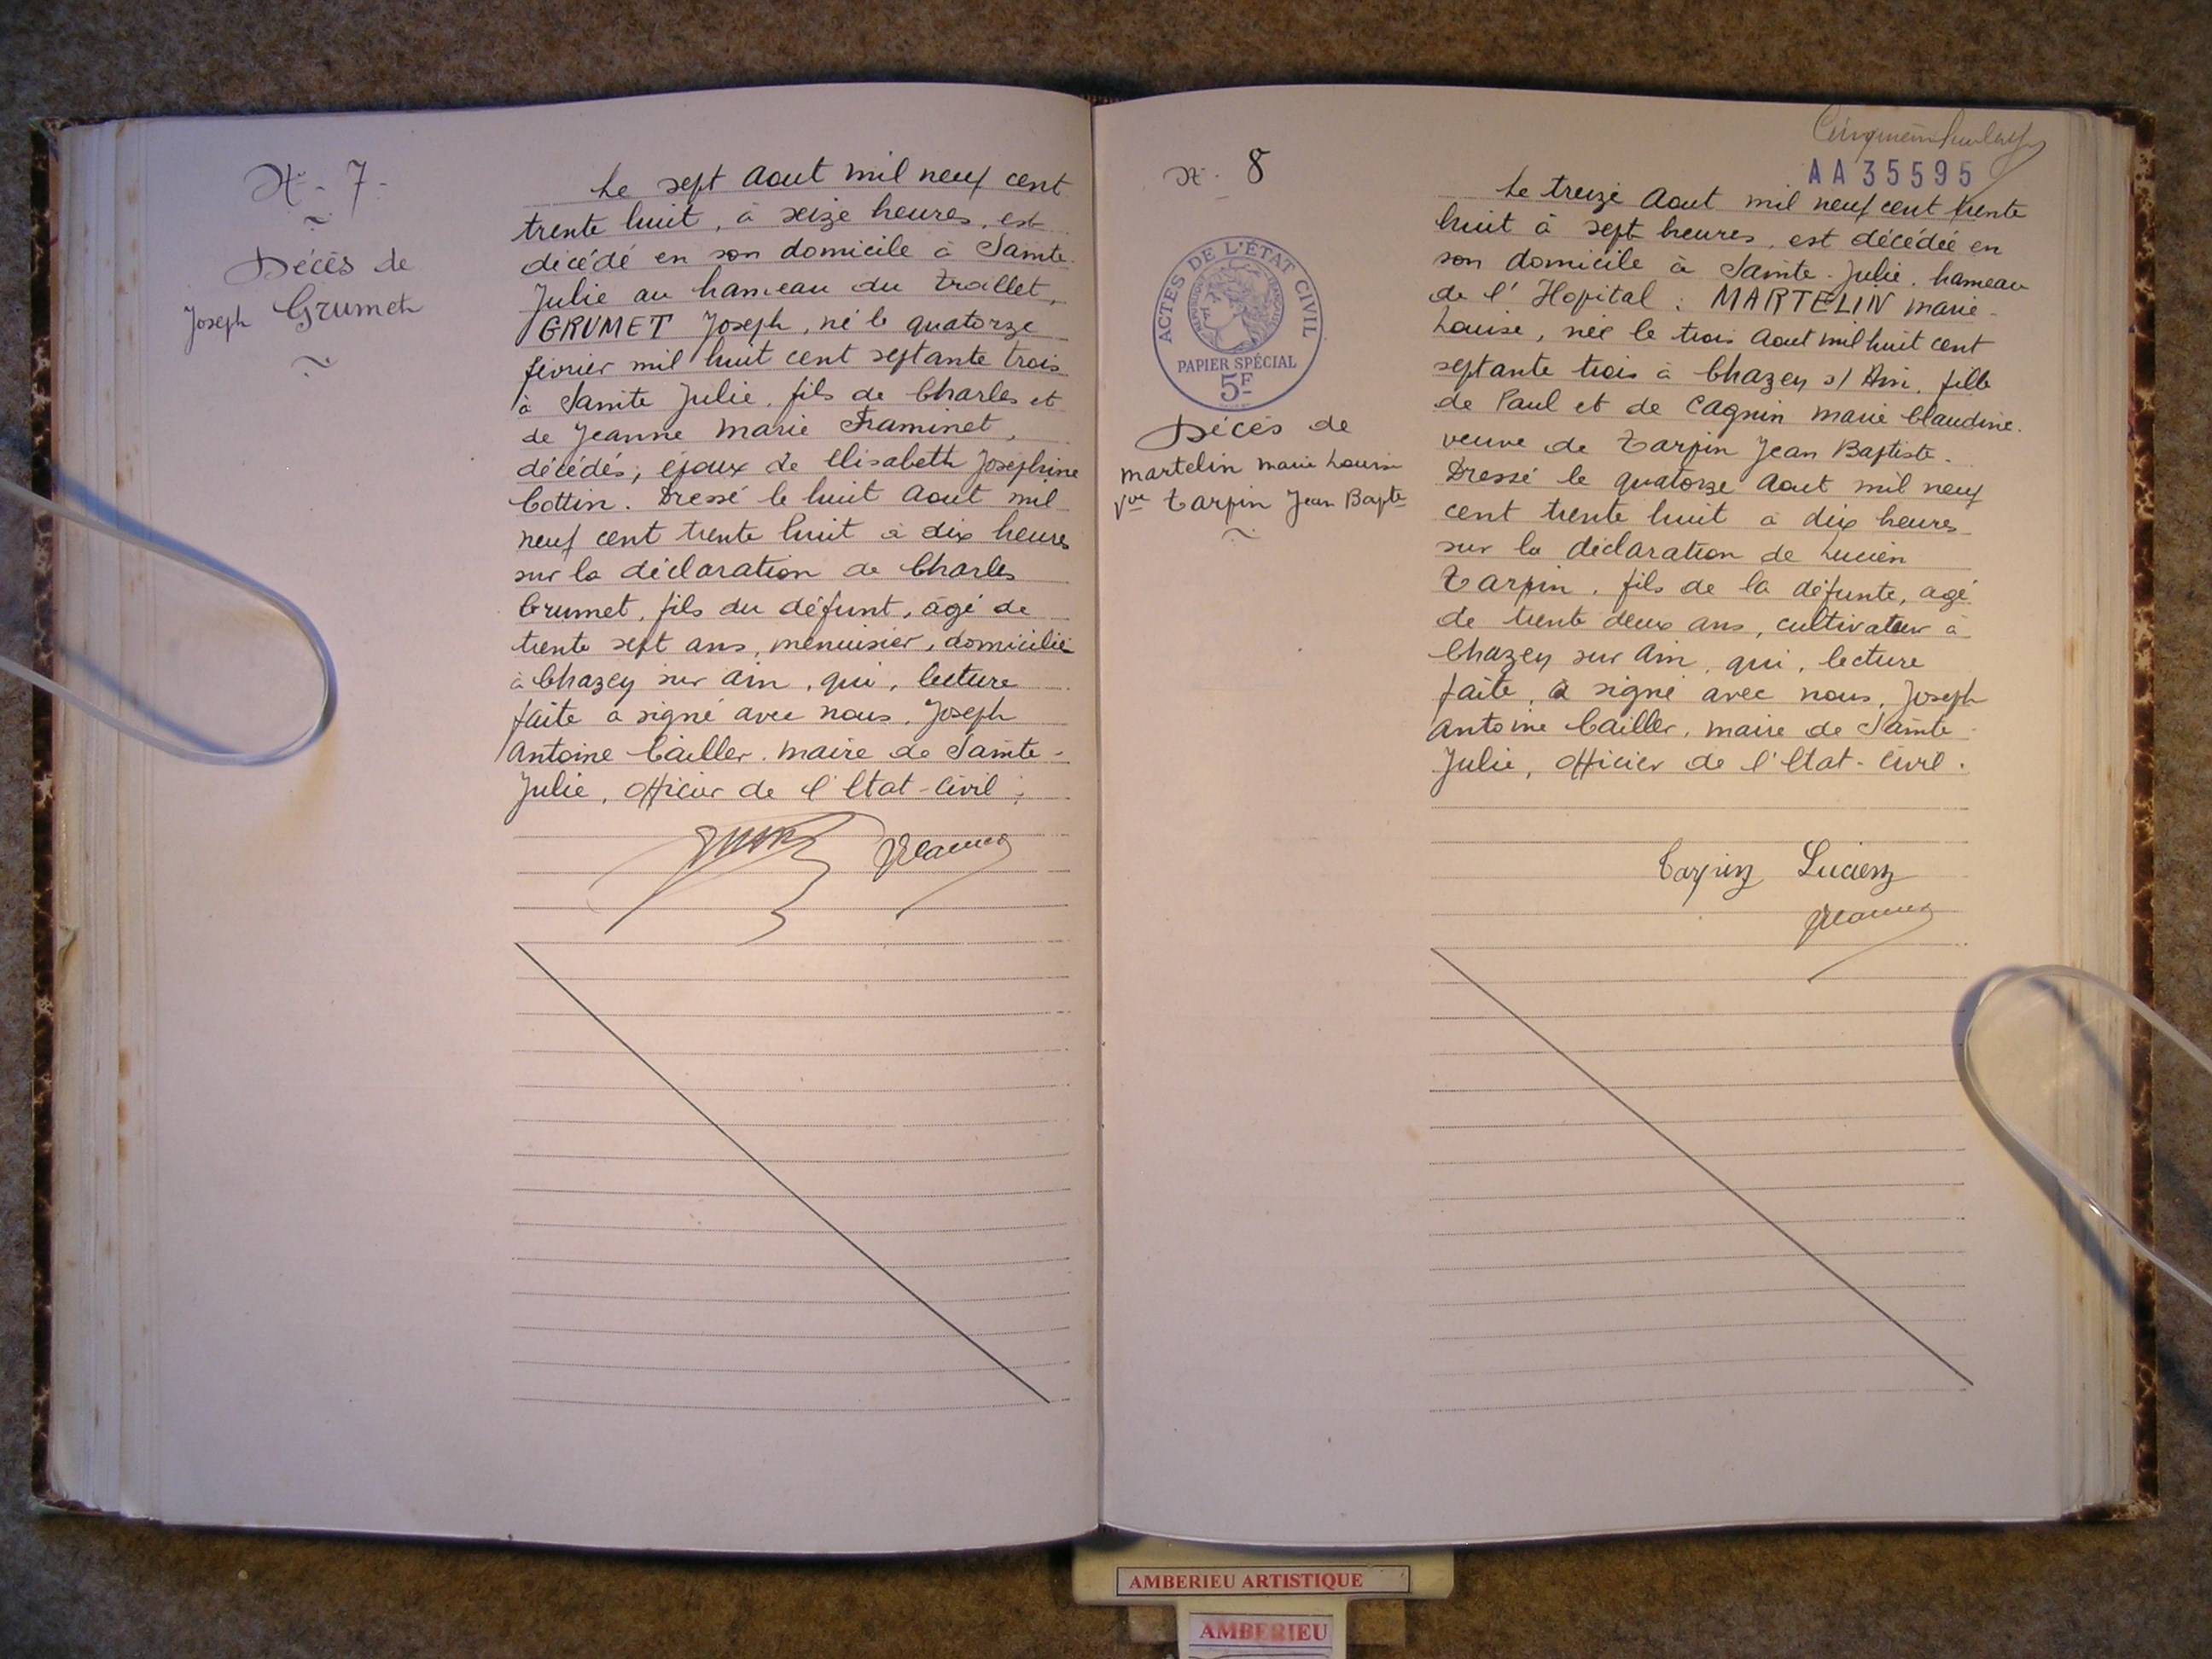 N° - 7 -
Décès de
Joseph Grumet
Le sept Aout mil neuf cent
trente huit, à seize heures, est
décédé en son domicile à Sainte-
Julie au hameau du Trollet,
GRUMET Joseph, né le quatorze
février mil huit cent septante trois
à Sainte Julie, fils de Charles et
de Jeanne Marie Framinet,
décédés; époux de Elisabeth Joséphine
Cottin. Dressé le huit Aout mil
neuf cent trente huit à dix heures
sur la déclaration de Charles
Grumet, fils du défunt, âgé de
trente sept ans, menuisier, domicilié
à Chazey sur Ain, qui, lecture
faite a signé avec nous, Joseph
Antoine Cailler, maire de Sainte-
Julie, Officier de l'Etat-Civil.
N° 8
ACTES DE L'ÉTAT CIVIL
RÉPUBLIQUE FRANÇAISE
PAPIER SPÉCIAL
5F
Décès de
Martelin Marie Louise
Vve Tarpin Jean Bapte
AA 35595
Le treize Aout mil neuf cent trente
huit à sept heures, est décédée en
son domicile à Sainte-Julie, hameau
de l'Hopital : MARTELIN Marie-
Louise, née le trois Aout mil huit cent
septante trois à Chazey s/ Ain, fille
de Paul et de Cagnin Marie Claudine.
veuve de Tarpin Jean Baptiste.
Dressé le quatorze Aout mil neuf
cent trente huit à dix heures
sur la déclaration de Lucien
Tarpin, fils de la défunte, agé
de trente deux ans, cultivateur à
Chazey sur Ain, qui, lecture
faite, a signé avec nous, Joseph
Antoine Cailler, maire de Sainte-
Julie, Officier de l'Etat-Civil.
Tarpin Lucien
AMBERIEU ARTISTIQUE
AMBERIEU